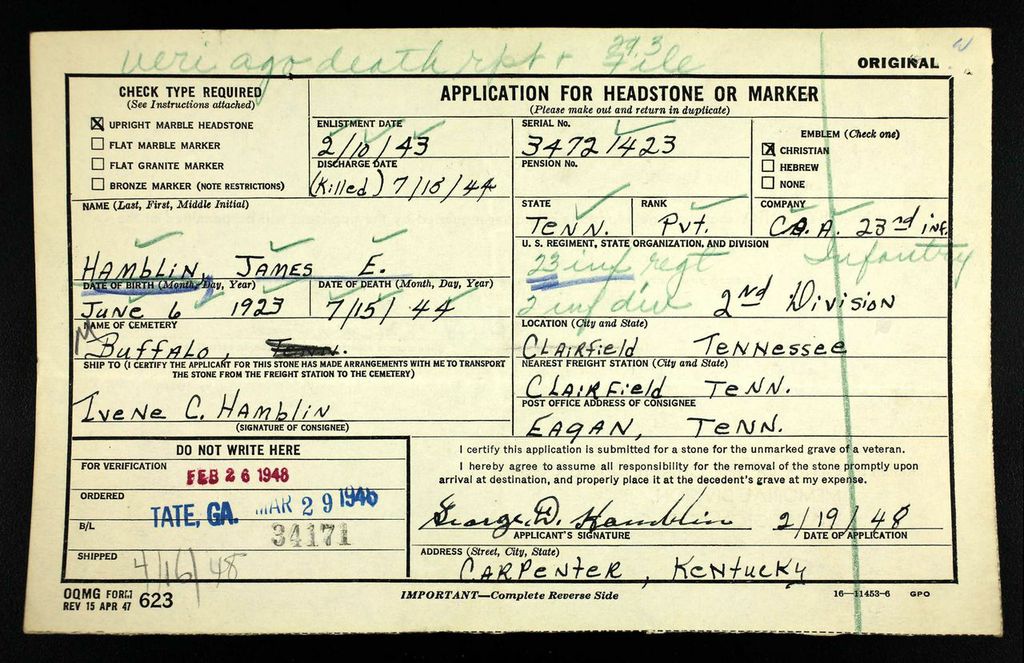 veri ago death rpt + file
29.3
ORIGINAL
CHECK TYPE REQUIRED
(See Instructions attached)
☒ UPRIGHT MARBLE HEADSTONE
☐ FLAT MARBLE MARKER
☐ FLAT GRANITE MARKER
☐ BRONZE MARKER (NOTE RESTRICTIONS)
APPLICATION FOR HEADSTONE OR MARKER
(Please make out and return in duplicate)
ENLISTMENT DATE
2/10/43
DISCHARGE DATE
(Killed) 7/15/44
SERIAL No.
34721423
PENSION No.
EMBLEM (Check one)
☒ CHRISTIAN
☐ HEBREW
☐ NONE
STATE
TENN.
RANK
Pvt.
COMPANY
Co. A. 23rd inf.
NAME (Last, First, Middle Initial)
HAMBLIN, JAMES E.
U. S. REGIMENT, STATE ORGANIZATION, AND DIVISION
23 inf regt Infantry
2 inf div 2nd Division
DATE OF BIRTH (Month, Day, Year)
June 6 1923
DATE OF DEATH (Month, Day, Year)
7/15/44
NAME OF CEMETERY
Buffalo, Tenn.
LOCATION (City and State)
Clairfield Tennessee
SHIP TO (I CERTIFY THE APPLICANT FOR THIS STONE HAS MADE ARRANGEMENTS WITH ME TO TRANSPORT
THE STONE FROM THE FREIGHT STATION TO THE CEMETERY)
NEAREST FREIGHT STATION (City and State)
Clairfield Tenn.
Ivene C. Hamblin
(SIGNATURE OF CONSIGNEE)
POST OFFICE ADDRESS OF CONSIGNEE
Eagan, Tenn.
DO NOT WRITE HERE
FOR VERIFICATION
FEB 26 1948
ORDERED
TATE, GA. MAR 29 1948
B/L
34171
SHIPPED
4/16/48
I certify this application is submitted for a stone for the unmarked grave of a veteran.
I hereby agree to assume all responsibility for the removal of the stone promptly upon
arrival at destination, and properly place it at the decedent's grave at my expense.
George D. Hamblin 2/19/48
APPLICANT'S SIGNATURE DATE OF APPLICATION
ADDRESS (Street, City, State)
Carpenter, Kentucky
OQMG FORM
REV 15 APR 47 623
IMPORTANT—Complete Reverse Side
16—11453-6 GPO